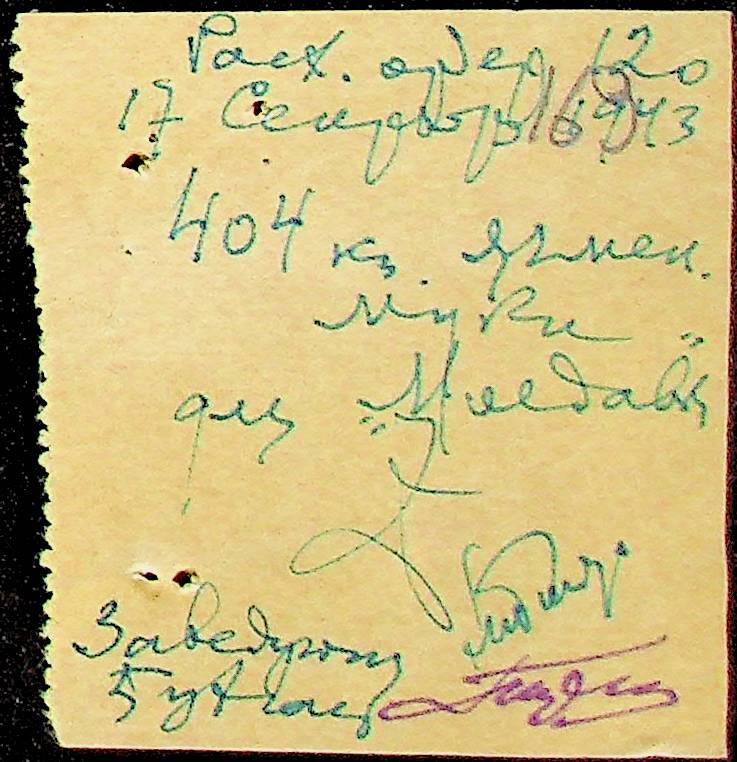 Расх. ордер 120
17 Сентября 1943
168
404 кг. ячмен.
муки
для „Молдавк"
Заведующ